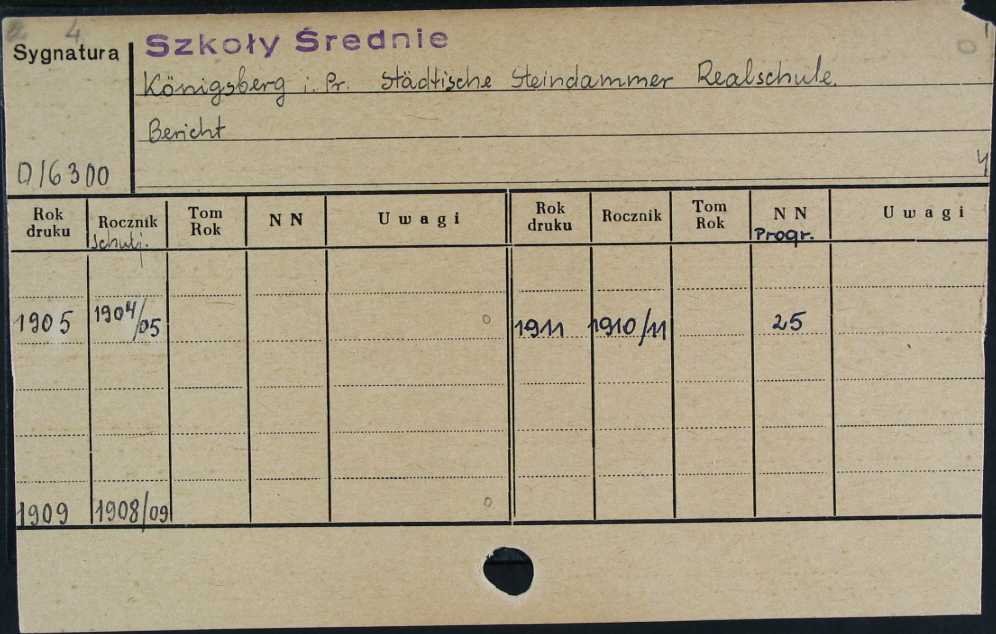 4
Sygnatura
Szkoły Średnie
Königsberg i. Pr. Städtische Steindammer Realschule.
Bericht
0/6300
Rok druku Rocznik Tom Rok NN Uwagi Rok druku Rocznik Tom Rok NN Uwagi
Schulj. Progr.
1905 1904/05 0 1911 1910/11 25
1909 1908/09 0